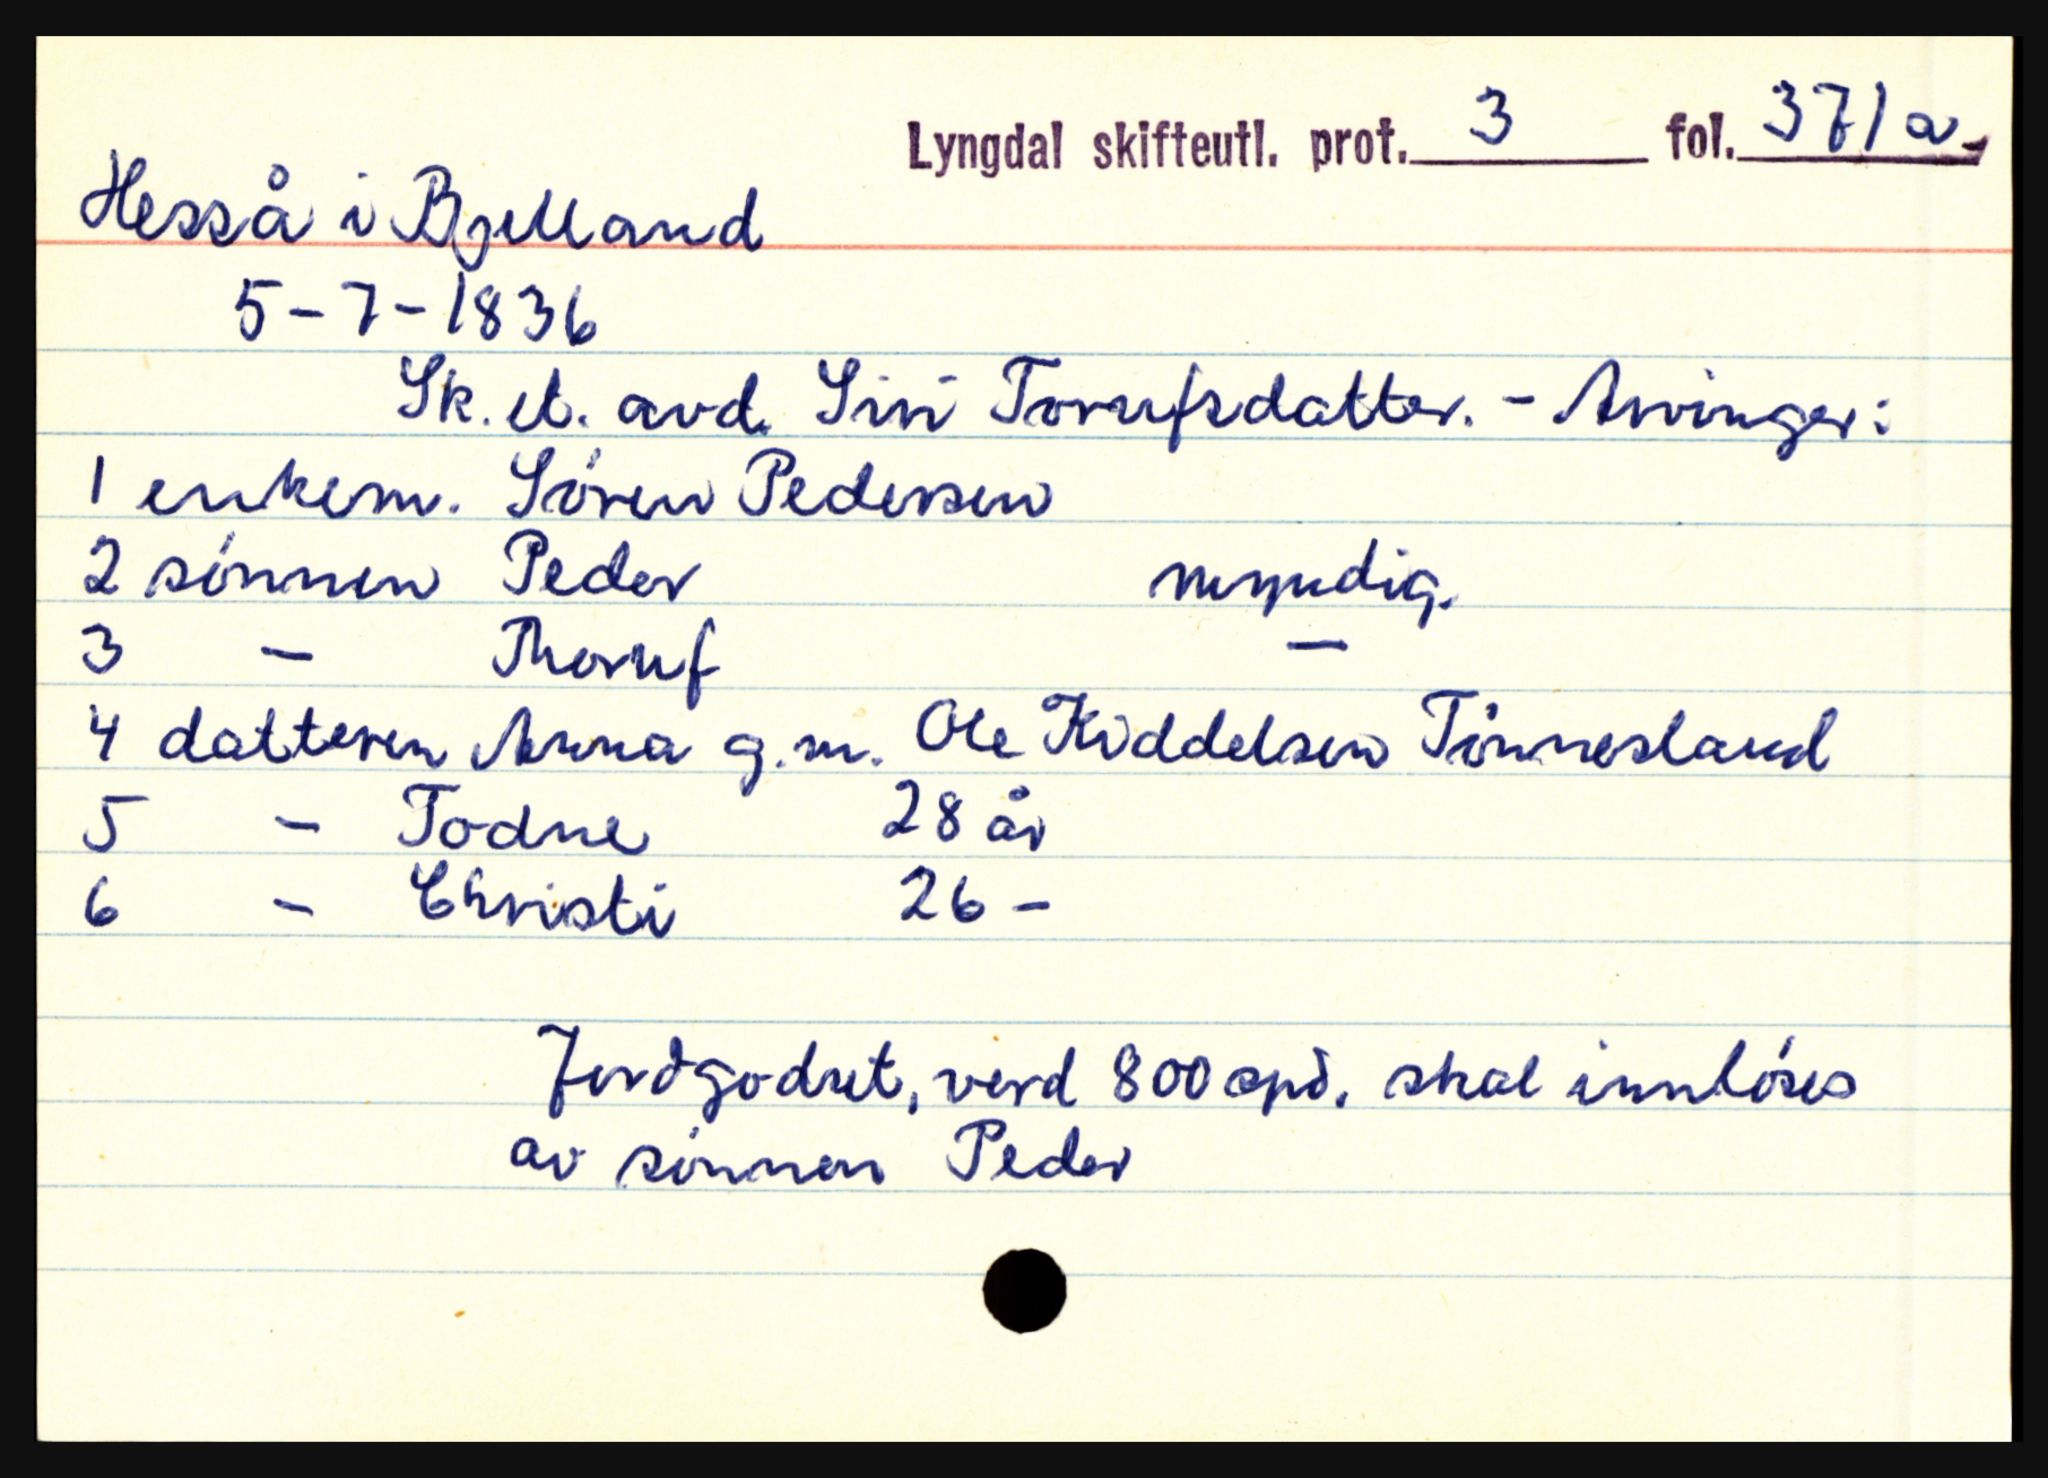 Lyngdal skifteutl. prot. 3 fol. 371a
Hesså i Bjelland
5-7-1836
Sk. et. avd. Siri Torufsdatter. - Arvinger:
1 enkem. Sören Pedersen
2 sönnen Peder myndig.
3 - Thoruf -
4 datteren Anna g.m. Ole Kiddelsen Tönnesland
5 - Todne 28 år
6 - Christi 26 -
Jordgodset, verd 800 spd. skal innlöses
av sönnen Peder